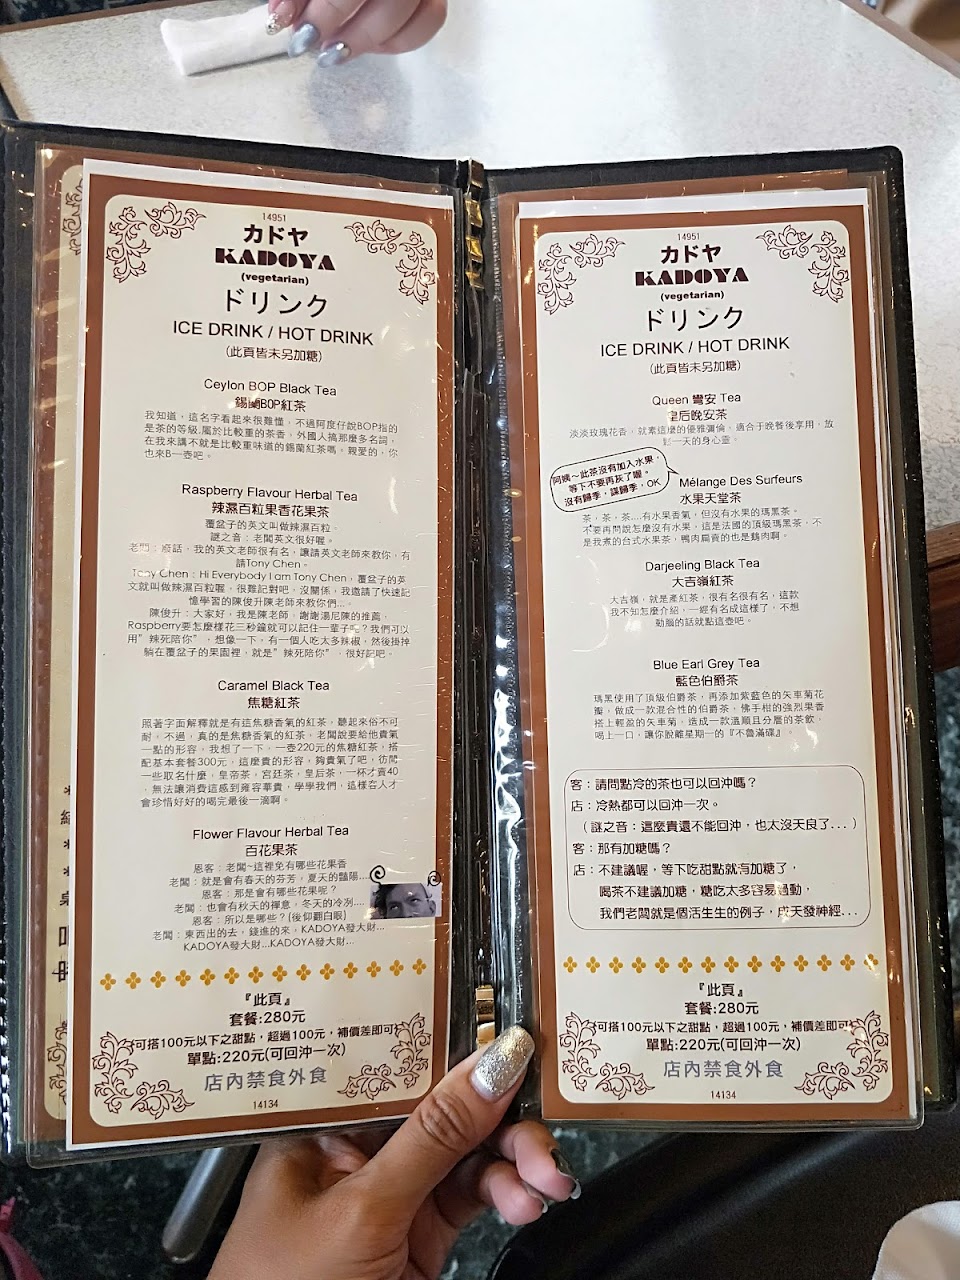 14951
カドヤ
KADOYA
(vegetarian)
ドリンク
ICE DRINK / HOT DRINK
(此頁皆未另加糖)
Ceylon BOP Black Tea
錫蘭BOP紅茶
我知道，這名字看起來很難懂，不過阿度仔說BOP指的
是茶的等級.屬於比較重的茶香，外國人搞那麼多名詞，
在我來講不就是比較重味道的錫蘭紅茶嗎。親愛的，你
也來B一壺吧。
Raspberry Flavour Herbal Tea
辣濕百粒果香花果茶
覆盆子的英文叫做辣濕百粒。
謎之音：老闆英文很好喔。
老闆：廢話，我的英文老師很有名，讓請英文老師來教你，有
請Tony Chen。
Tony Chen：Hi Everybody I am Tony Chen，覆盆子的英
文就叫做辣濕百粒喔，很難記對吧，沒關係，我邀請了快速記
憶學習的陳俊升陳老師來教你們...。
陳俊升：大家好，我是陳老師，謝謝湯尼陳的推薦，
Raspberry要怎麼樣花三秒鐘就可以記住一輩子呢？我們可以
用"辣死陪你"，想像一下，有一個人吃太多辣椒，然後掛掉
躺在覆盆子的果園裡，就是"辣死陪你"，很好記吧。
Caramel Black Tea
焦糖紅茶
照著字面解釋就是有這焦糖香氣的紅茶，聽起來俗不可
耐。不過，真的是焦糖香氣的紅茶，老闆說要給他貴氣
一點的形容，我想了一下，一壺220元的焦糖紅茶，搭
配基本套餐300元，這麼貴的形容，夠貴氣了吧，彷彿
一些取名什麼，皇帝茶，宮廷茶，皇后茶，一杯才賣40
，無法讓消費這感到雍容華貴，學學我們，這樣客人才
會珍惜好好的喝完最後一滴啊。
Flower Flavour Herbal Tea
百花果茶
恩客：老闆~這裡免有哪些花果香
老闆：就是會有春天的芬芳，夏天的豔陽...
恩客：那是會有哪些花果呢？
老闆：也會有秋天的禪意，冬天的冷冽....
恩客：所以是哪些？(後仰翻白眼)
老闆：東西出的去，錢進的來，KADOYA發大財...
KADOYA發大財...KADOYA發大財...
『此頁』
套餐:280元
(可搭100元以下之甜點，超過100元，補價差即可)
單點:220元(可回沖一次)
店內禁食外食
14134
14951
カドヤ
KADOYA
(vegetarian)
ドリンク
ICE DRINK / HOT DRINK
(此頁皆未另加糖)
Queen 彎安 Tea
皇后晚安茶
淡淡玫瑰花香，就素這麼的優雅彌倫，適合于晚餐後享用，放
鬆一天的身心靈。
阿姨～此茶沒有加入水果，
等下不要再灰了喔。
沒有歸季，謀歸季，OK
Mélange Des Surfeurs
水果天堂茶
茶，茶，茶....有水果香氣，但沒有水果的瑪黑茶。
不要再問說怎麼沒有水果，這是法國的頂級瑪黑茶，不
是我煮的台式水果茶，鴨肉扁賣的也是鵝肉啊。
Darjeeling Black Tea
大吉嶺紅茶
大吉嶺，就是產紅茶，很有名很有名，這款
我不知怎麼介紹，一經有名成這樣了，不想
動腦的話就點這壺吧。
Blue Earl Grey Tea
藍色伯爵茶
瑪黑使用了頂級伯爵茶，再添加紫藍色的矢車菊花
瓣，做成一款混合性的伯爵茶，佛手柑的強烈果香
搭上輕盈的矢車菊，造成一款溫順且分層的茶飲，
喝上一口，讓你脫離星期一的『不魯滿碟』。
客：請問點冷的茶也可以回沖嗎？
店：冷熱都可以回沖一次。
(謎之音：這麼貴還不能回沖，也太沒天良了...)
客：那有加糖嗎？
店：不建議喔，等下吃甜點就有加糖了，
喝茶不建議加糖，糖吃太多容易過動，
我們老闆就是個活生生的例子，成天發神經...
『此頁』
套餐:280元
(可搭100元以下之甜點，超過100元，補價差即可)
單點:220元(可回沖一次)
店內禁食外食
14134